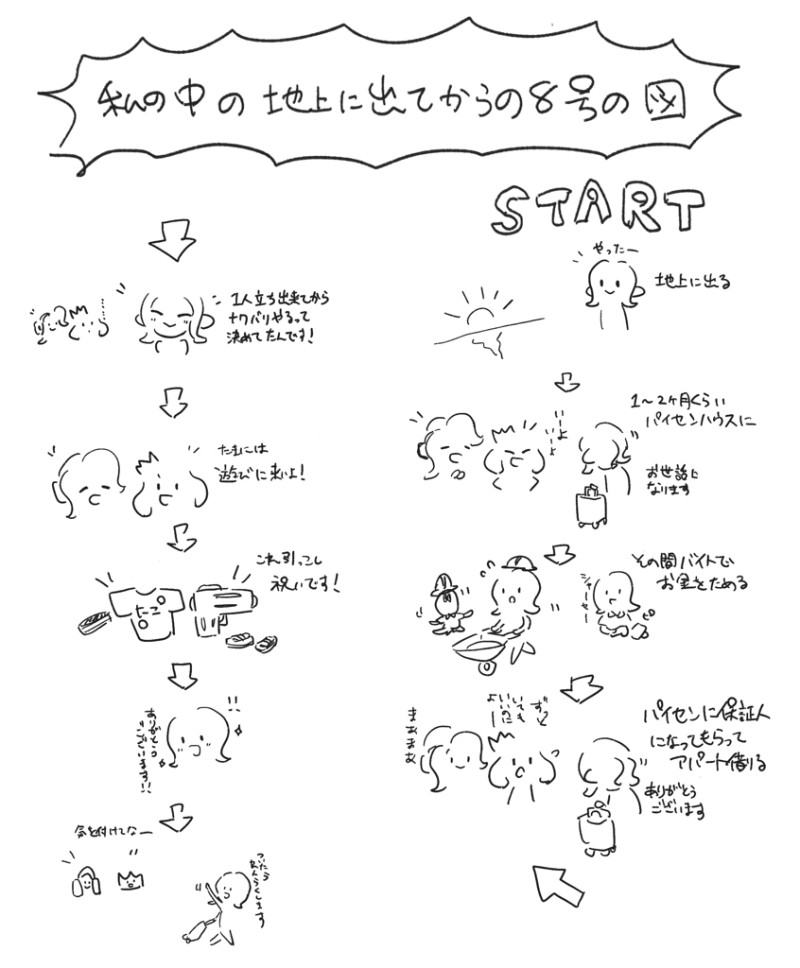 私の中の地上に出てからの8号の図
START
やったー
地上に出る
1〜2ヶ月くらい
パイセンハウスに
いーよ
いーよ
お世話に
なります
その間バイトで
お金をためる
シャーセー
パイセンに保証人
になってもらって
アパート借りる
まぁまぁ
ずっと
いても
いいのに
よー
ありがとう
ございます
1人立ち出来てから
ナワバリやるって
決めてたんです!
たまには
遊びに来いよ!
これ引っこし
祝いです!
たこ
ありがとう
ございます!!
気を付けてなー
ついたら
れんらくします